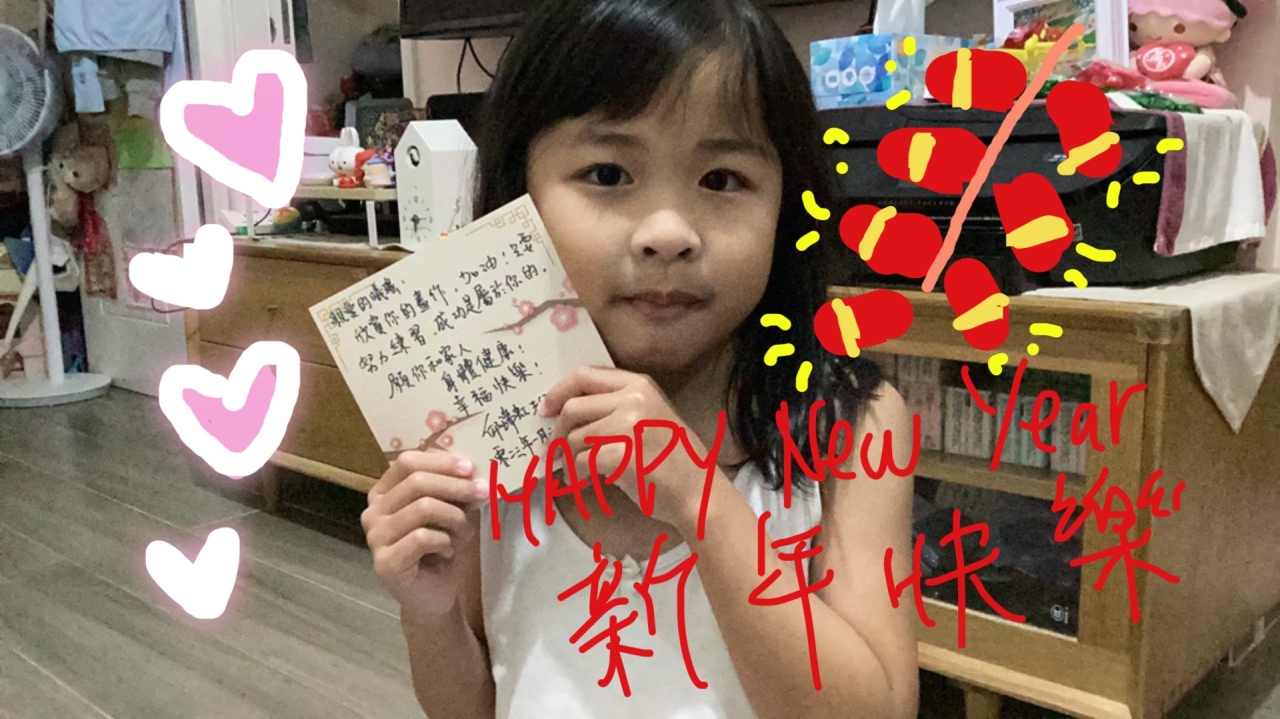 親愛的曦嘉:
欣賞你的畫作,加油,還要
努力練習,成功是屬於你的。
願你和家人
身體健康!
幸福快樂!
HAPPY New Year
新年快樂